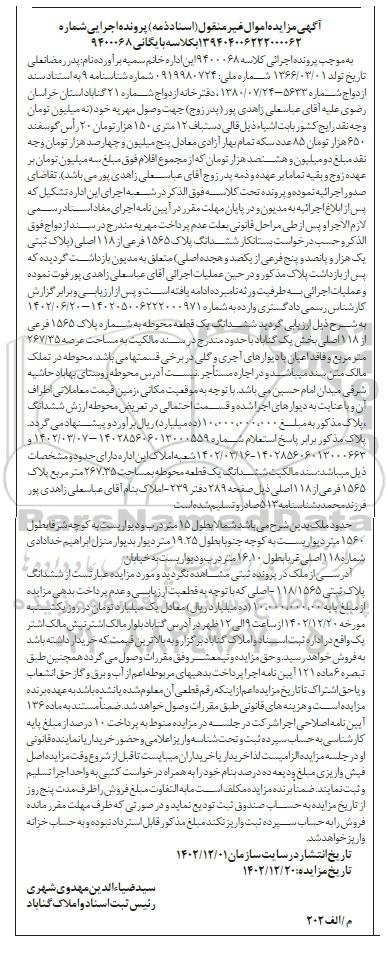 آگهی مزایده اموال غیر منقول (اسناد ذمه) پرونده اجرایی شماره
۱۳۹۴۰۴۰۰۶۲۲۲۰۰۰۰۶۲ بکلاسه بایگانی ۹۴۰۰۰۶۸
به موجب پرونده اجرائی کلاسه ۹۴۰۰۰۶۸ این اداره خانم سمیه برآورده نام: پدر رمضانعلی
تاریخ تولد: ۱۳۶۶/۰۳/۰۱ شماره ملی: ۰۹۱۹۹۸۰۷۲۴ شماره شناسنامه ۹ به استناد سند
ازدواج شماره ۵۶۳۳-۱۳۸۰/۰۷/۲۴، دفترخانه ازدواج شماره ۲۱ گناباد استان خراسان
رضوی علیه آقای عباسعلی زاهدی پور (پدر زوج) جهت وصول مهریه خود (نه میلیون تومان
وجه نقد رایج کشور بابت اشیاء ذیل قالی دستباف ۱۲ متری ۱۵۰ هزار تومان ۲۰ رأس گوسفند
۶۵۰ هزار تومان ۸۵ عدد سکه تمام بهار آزادی معادل پنج میلیون و چهارصد هزار تومان وجه
نقد مبلغ دو میلیون و هشتصد هزار تومان که از مجموع اقلام فوق مبلغ سه میلیون تومان بر
عهده زوج و بقیه تماما بر عهده و ذمه پدر زوج آقای عباسعلی زاهدی پور می باشد). تقاضای
صدور اجرائیه نموده و پرونده تحت کلاسه فوق الذکر در شعبه اجرای این اداره تشکیل که
پس از ابلاغ اجرائیه به مدیون و در پایان مهلت مقرر در آیین نامه اجرای مفاد اسناد رسمی
لازم الاجرا و پس از طی مراحل قانونی بعلت عدم پرداخت مهریه مندرج در سند ازدواج فوق
الذکر و حسب درخواست بستانکار ششدانگ پلاک ۱۵۶۵ فرعی از ۱۱۸ اصلی (پلاک ثبتی
یک هزار و پانصد و پنج فرعی از یکصد و هجده اصلی) متعلق به مدیون بازداشت گردیده که
پس از بازداشت پلاک مذکور و در حین عملیات اجرائی آقای عباسعلی زاهدی پور فوت نموده
و عملیات اجرائی به طرفیت ورثه نامبرده ادامه یافته است و پس از ارزیابی و برابر گزارش
کارشناس رسمی دادگستری وارده به شماره ۱۴۰۲۰۵۰۰۶۲۲۲۰۰۰۹۷۱-۱۴۰۲/۰۶/۲۰
به شرح ذیل ارزیابی گردید ششدانگ یک قطعه محوطه به شماره پلاک ۱۵۶۵ فرعی
از ۱۱۸ اصلی بخش یک گناباد با حدود مندرج در سند مالکیت به مساحت عرصه ۲۶۷/۳۵
متر مربع و فاقد اعیان با دیوارهای آجری و گلی در برخی قسمتها می باشد. محوطه در تملک
مالک متن سند میباشد و در اجاره مستأجر نیست آدرس محوطه روستای بهاباد حاشیه
شرقی میدان امام حسین می باشد. با توجه به موقعیت مکانی، زمین قیمت معاملاتی اطراف
آن و با عنایت به دیوارهای اجرا شده و قسمت احتمالی در تعریض محوطه ارزش ششدانگ
، پلاک مذکور به مبلغ ۱۰،۰۰۰،۰۰۰،۰۰۰ (ده میلیارد) ریال برآورد و پیشنهاد می گردد.
پلاک مذکور برابر پاسخ استعلام شماره ۱۴۰۲۸۵۶۰۶۰۱۳۰۰۰۵۵۹-۱۴۰۲/۰۳/۰۷ و
۱۴۰۲۸۵۶۰۶۰۱۳۰۰۰۶۶۳-۱۴۰۲/۰۳/۱۶ شعبه املاک این اداره دارای حدود و مشخصات
ذیل میباشد: سند مالکیت ششدانگ یک قطعه محوطه بمساحت ۲۶۷.۳۵ متر مربع پلاک
۱۵۶۵ فرعی از ۱۱۸ اصلی ذیل صفحه ۲۸۹ دفتر ۲۳۹-املاک بنام آقای عباسعلی زاهدی پور
فرزند محمد بشناسنامه ۵۱۳ صادر و تسلیم شده است
حدود ملک بدین شرح می باشد: شمالا بطول ۱۵ متر درب و دیواریست به کوچه شرقا بطول
۱۵.۶۰ متر دیواریست به کوچه جنوبا بطول ۱۹.۲۵ متر دیوار بدیوار منزل ابراهیم خدادادی
شماره ۱۱۸ اصلی غربا بطول ۱۶.۱۰ متر درب و دیواریست به خیابان
آدرسی از ملک در پرونده ثبتی مشاهده نگردید و مورد مزایده عبارتست از ششدانگ
پلاک ثبتی ۱۱۸/۱۵۶۵-اصلی که با توجه به قطعیت ارزیابی و عدم پرداخت بدهی مزایده
از مبلغ پایه ۱۰،۰۰۰،۰۰۰،۰۰۰ (ده میلیارد ریال) معادل یک میلیارد تومان در روز یکشنبه
مورخه ۱۴۰۲/۱۲/۲۰ از ساعت ۹ الی ۱۲ ظهر در آدرس گناباد بلوار مالک اشتر نبش مالک اشتر
یک واقع در اداره ثبت اسناد و املاک گناباد برگزار و به بالاترین قیمت که خریدار داشته باشد
به فروش خواهد رسید. و حق مزایده و نیمعشر وفق مقررات وصول می گردد همچنین طبق
تبصره ۶ ماده ۱۲۱ آیین نامه اجرا پرداخت بدهیهای مربوطه اعم از آب و برق و گاز حق انشعاب
و یا حق اشتراک تا تاریخ مزایده اعم از اینکه رقم قطعی آن معلوم شده یا نشده باشد به عهده برنده
مزایده است و هزینه های قانونی طبق مقررات وصول خواهد شد. ضمناً مستند به ماده ۱۳۶
آیین نامه اصلاحی اجرا شرکت در جلسه در مزایده منوط به پرداخت ۱۰ درصد از مبلغ پایه
کارشناسی به حساب سپرده ثبت و تحت شناسه واریز اعلامی و حضور خریدار یا نماینده قانونی
او در جلسه مزایده الزامیست لذا خریدار یا خریداران میبایست تا قبل از شروع وقت مزایده اصل
فیش واریزی مبلغ ودیعه ده درصد بنام خود را به همراه درخواست کتبی به واحد اجرا تسلیم
و ثبت نمایند. ضمناً برنده مزایده مکلف است مابه التفاوت مبلغ فروش را ظرف مدت پنج روز
از تاریخ مزایده به حساب صندوق ثبت تودیع نماید و در صورتی که ظرف مهلت مقرر مانده
فروش را به حساب سپرده ثبت واریز نکند مبلغ مذکور قابل استرداد نبوده و به حساب خزانه
واریز خواهد شد.
تاریخ انتشار در سایت سازمان: ۱۴۰۲/۱۲/۰۱
تاریخ مزایده: ۱۴۰۲/۱۲/۲۰
سید ضیاءالدین مهدوی شهری
رئیس ثبت اسناد و املاک گناباد
م/الف ۲۰۲